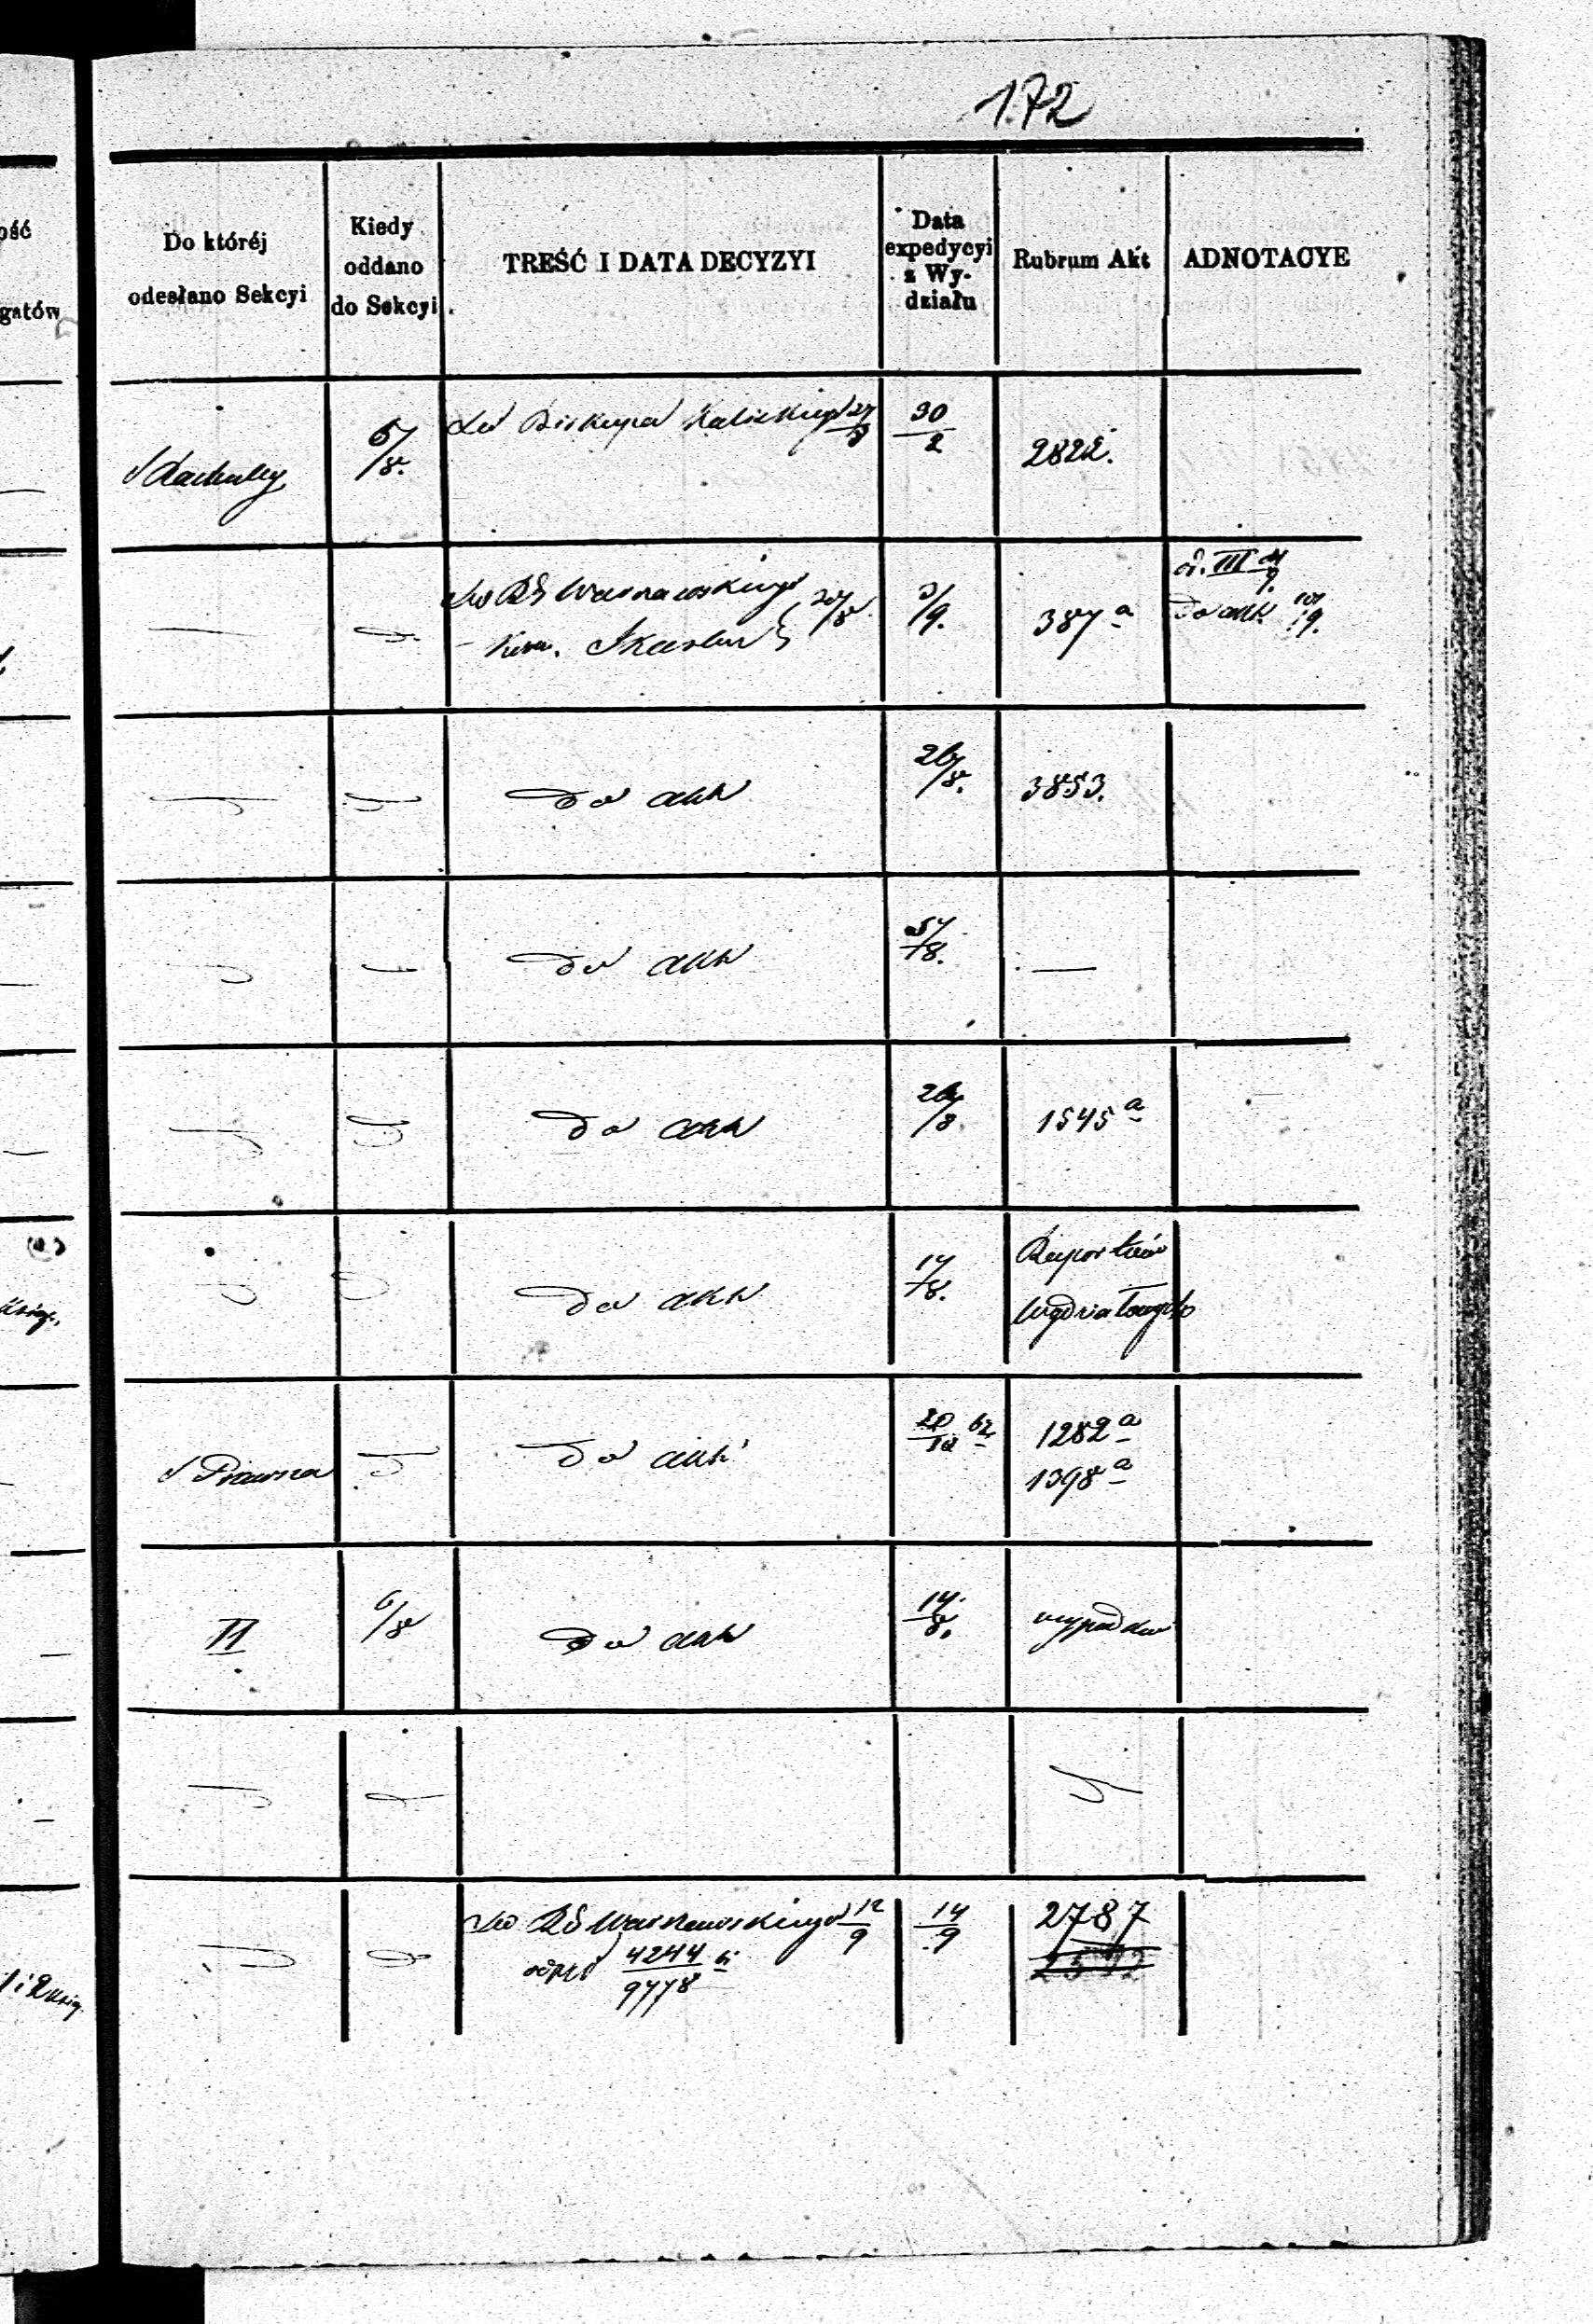 172
ość
gatów
Do któréj
odesłano Sekcyi
Kiedy
oddano
do Sekcyi
TREŚĆ I DATA DECYZYI
Data
expedycyi
z Wy-
działu
Rubrum Akt
ADNOTACYE
5/8.
Do Biskupa Kaliskiego 27/8
30/2
2822.
Do RG Warszawskiego
20/8
Kom. Skarbu
3/9.
387 a
od. III
9.
Do akt. 10/19.
Do akt
26/8.
3853.
Do akt
5/8.
—
Do akt
26/8
1545 a
Do akt
14/8.
Raportów
Wydziałowych
S Prawna
Do akt
20/12 62
1282 a
1398 a
II
6/8
Do akt
14/8.
wypadków
Do RG Warszawskiego 12/9
odpis 4244/9778
14/9
2787
1 i 2 Ksią.